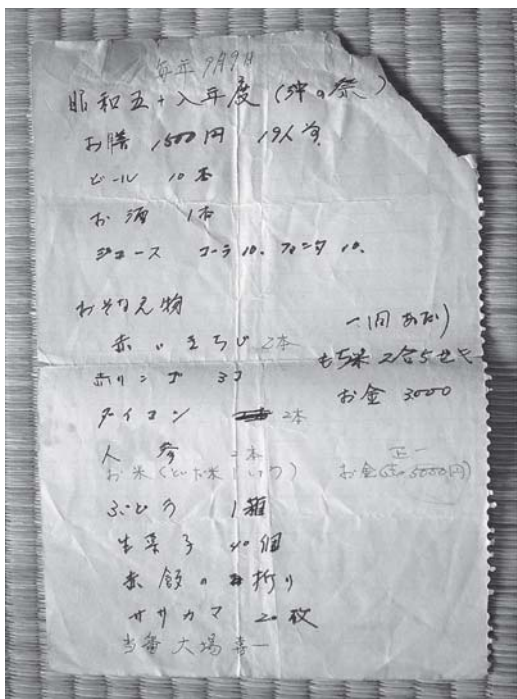 毎年9月9日
昭和五十八年度(沖の祭)
お膳 1,500円 19人前
ビール 10本
お酒 1本
ジュース コーラ10. ファンタ10.
おそなえ物
赤いきちじ 2本
赤リンゴ 3コ
ダイコン 2本
人参 二本
お米(といだ米
ぶどう 1箱
生菓子 40個
赤飯 折り
ササカマ 20枚
当番 大場喜一
一同あたり
もち米 2合5せき
お金 3000
正一
お金 5000円)